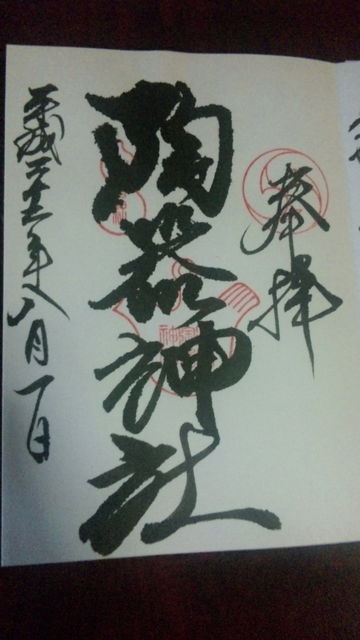 奉拝
陶器神社
平成二十二年八月一日